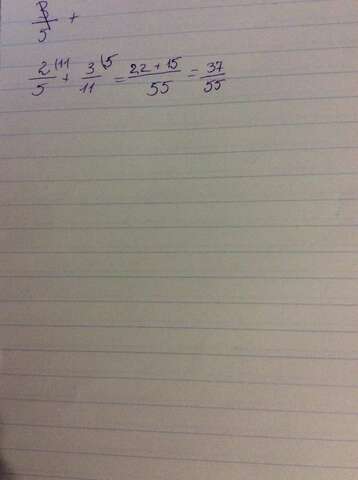 3/5 +
2/5 \11 + 3/11 \5 = 22 + 15/55 = 37/55